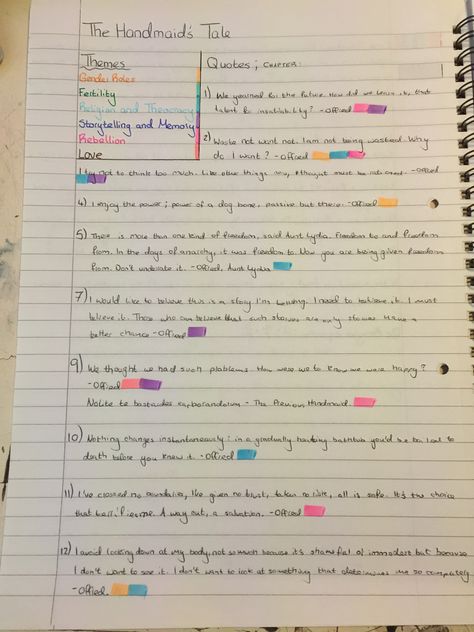 The Handmaid's Tale
Themes
Gender Roles
Fertility
Religion and Theocracy
Storytelling and Memory
Rebellion
Love
Quotes ; CHAPTER:
1) We yearned for the future. How did we learn it, that
talent for insatiability? - Offred
2) Waste not want not. I am not being wasted. Why
do I want? - Offred
I try not to think too much. Like other things now, thought must be rationed - Offred
4) I enjoy the power; power of a dog bone, passive but there. - Offred
5) There is more than one kind of freedom, said Aunt Lydia. Freedom to and freedom
from. In the days of anarchy, it was freedom to. Now you are being given freedom
from. Don't underrate it. - Offred, Aunt Lydia
7) I would like to believe this is a story I'm telling. I need to believe it. I must
believe it. Those who can believe that such stories are only stories have a
better chance - Offred
9) We thought we had such problems. How were we to know we were happy?
- Offred
Nolite te bastardes carborandorum - The Previous Handmaid.
10) Nothing changes instantaneously: in a gradually heating bathtub you'd be boiled to
death before you knew it. - Offred
11) I've crossed no boundaries, I've given no trust, taken no risk, all is safe. It's the choice
that terrifies me. A way out, a salvation. - Offred
12) I avoid looking down at my body, not so much because it's shameful or immodest but because
I don't want to see it. I don't want to look at something that determines me so completely
- Offred.